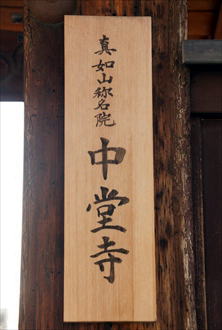 真如山称名院
中堂寺